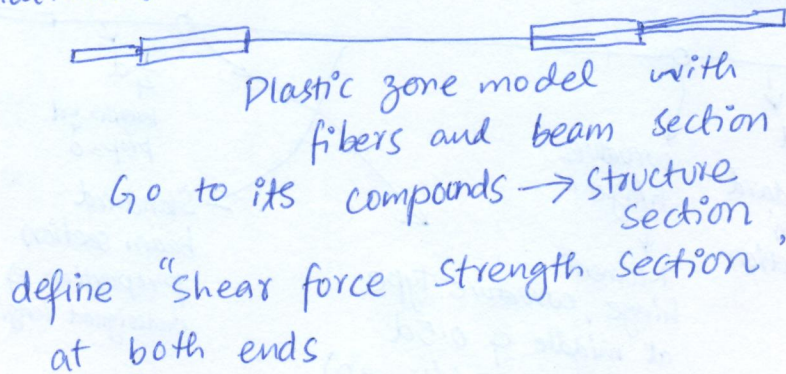 Plastic zone model with
fibers and beam section
Go to its compounds → structure
section
define "Shear force strength section"
at both ends